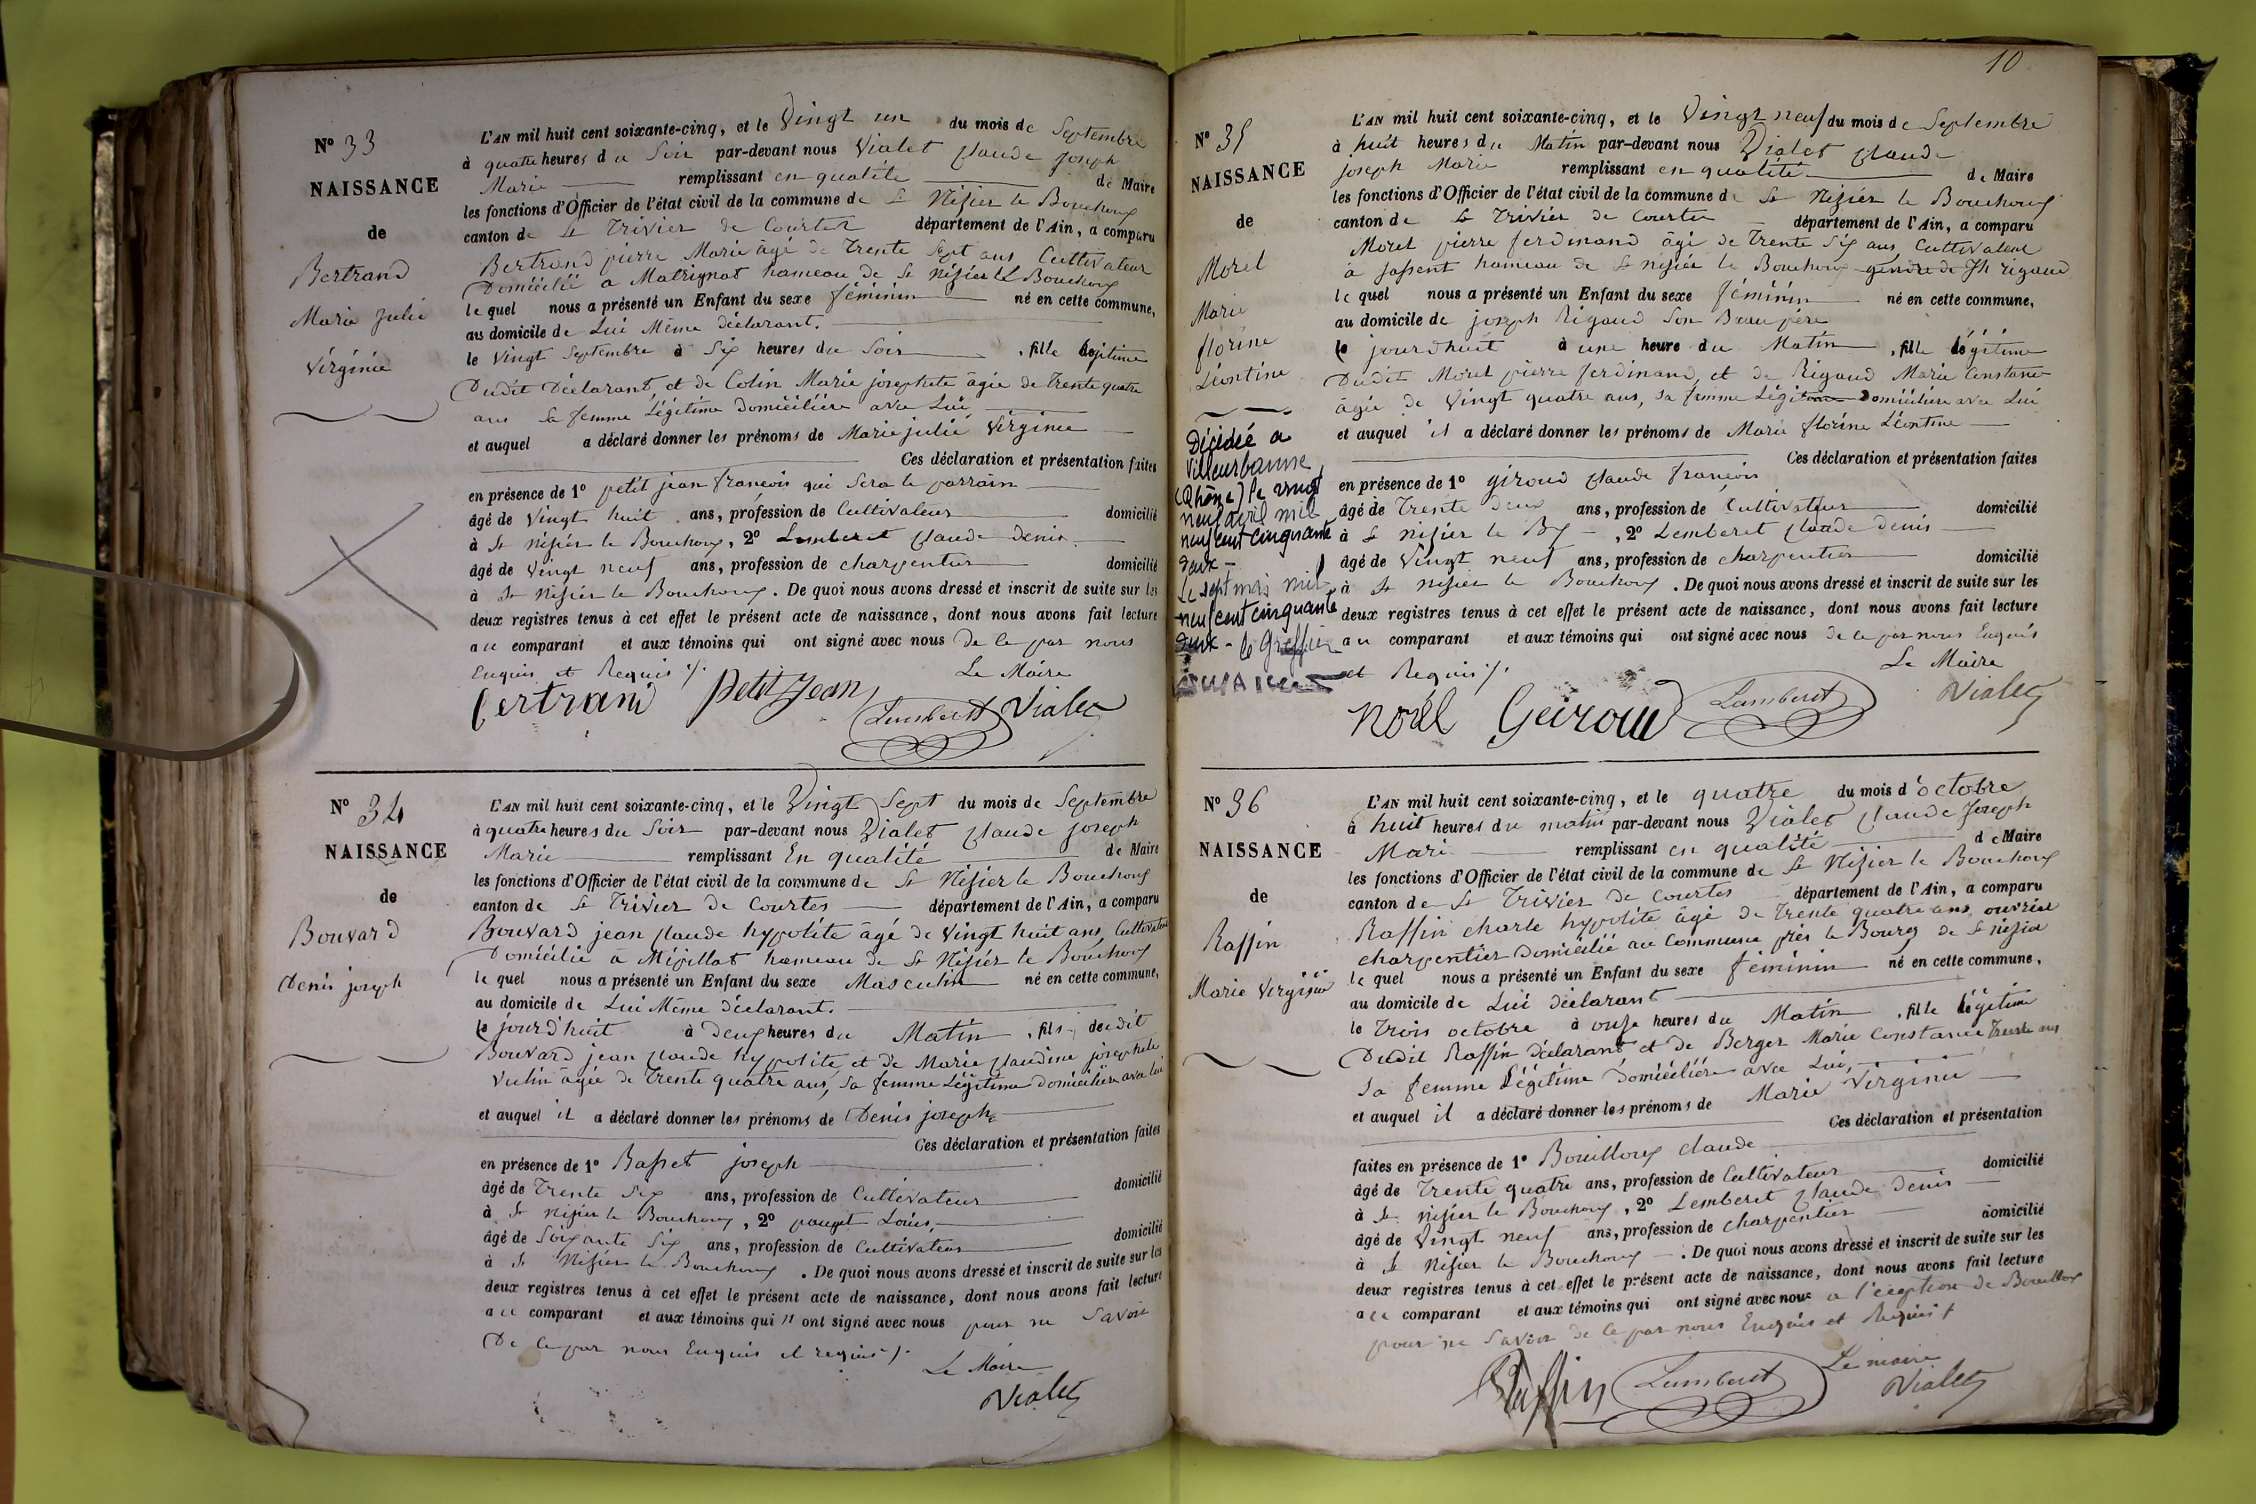 N° 33
NAISSANCE
de
Bertrand
Marie Julie
Virginie
L'AN mil huit cent soixante-cinq, et le Vingt un du mois de Septembre
à quatre heures du Soir par-devant nous Vialet Claude Joseph
Marie remplissant en qualité de Maire
les fonctions d'Officier de l'état civil de la commune de St Nizier le Bouchoux
canton de St Trivier de Courtes département de l'Ain, a comparu
Bertrand pierre Marie âgé de Trente Sept ans Cultivateur
Domicilié a Matrignat hameau de St Nizier le Bouchoux
lequel nous a présenté un Enfant du sexe féminin né en cette commune,
au domicile de Lui Même déclarant.
le Vingt Septembre à Six heures du Soir , fille légitime
Dudit Déclarant, et de Colin Marie josephete âgée de Trente quatre
ans sa femme Légitime Domicilière avec Lui
et auquel a déclaré donner les prénoms de Marie julie Virginie
Ces déclaration et présentation faites
en présence de 1° petit jean françois qui sera le parrain
âgé de Vingt huit ans, profession de Cultivateur domicilié
à St Nizier le Bouchoux, 2° Lemberet Claude denis
âgé de Vingt neuf ans, profession de charpentier domicilié
à St Nizier le Bouchoux. De quoi nous avons dressé et inscrit de suite sur les
deux registres tenus à cet effet le présent acte de naissance, dont nous avons fait lecture
au comparant et aux témoins qui ont signé avec nous de ce par nous
Enquis et Requis ./.
Le Maire
Bertrand Petit Jean Lemberet Vialet
N° 34
NAISSANCE
de
Bouvard
Denis joseph
L'AN mil huit cent soixante-cinq, et le Vingt Sept du mois de Septembre
à quatre heures du Soir par-devant nous Vialet Claude joseph
Marie remplissant En qualité de Maire
les fonctions d'Officier de l'état civil de la commune de St Nizier le Bouchoux
canton de St Trivier de Courtes département de l'Ain, a comparu
Bouvard jean Claude hypolite âgé de Vingt huit ans, Cultivateur
Domicilié à Mépillat hameau de St Nizier le Bouchoux
lequel nous a présenté un Enfant du sexe Masculin né en cette commune,
au domicile de Lui Même déclarant.
le jourd'huit à Deux heures du Matin , fils dudit
Bouvard jean Claude hypolite et de Marie Claudine josephete
Vulin âgée de Trente quatre ans, sa femme Légitime Domicilière avec lui
et auquel il a déclaré donner les prénoms de Denis joseph
Ces déclaration et présentation faites
en présence de 1° Basset joseph
âgé de Trente Six ans, profession de Cultivateur domicilié
à St Nizier le Bouchoux, 2° pauget Louis
âgé de Soixante Six ans, profession de Cultivateur domicilié
à St Nizier le Bouchoux. De quoi nous avons dressé et inscrit de suite sur les
deux registres tenus à cet effet le présent acte de naissance, dont nous avons fait lecture
au comparant et aux témoins qui n'ont signé avec nous pour ne Savoir
De ce par nous Enquis et requis ./.
Le Maire
Vialet
10
N° 35
NAISSANCE
de
Morel
Marie
florine
Léontine
Décédée a
Villeurbanne
(Rhône) le vingt
neuf avril mil
neuf cent cinquante
deux -
Le sept mai mil
neuf cent cinquante
deux - le Greffier
L'AN mil huit cent soixante-cinq, et le Vingt neuf du mois de Septembre
à huit heures du Matin par-devant nous Vialet Claude
joseph Marie remplissant en qualité de Maire
les fonctions d'Officier de l'état civil de la commune de St Nizier le Bouchoux
canton de St Trivier de Courtes département de l'Ain, a comparu
Morel pierre ferdinand âgé de Trente Six ans Cultivateur
a Jassent hameau de St Nizier le Bouchoux gendre de Jh rigaud
lequel nous a présenté un Enfant du sexe féminin né en cette commune,
au domicile de joseph Rigaud Son Beau père
le jourd'huit à une heure du Matin , fille légitime
Dudit Morel pierre ferdinand, et de Rigaud Marie Constance
âgée de Vingt quatre ans, sa femme Légitime Domicilière avec Lui
et auquel il a déclaré donner les prénoms de Marie florine Léontine
Ces déclaration et présentation faites
en présence de 1° giroud Claude françois
âgé de Trente deux ans, profession de Cultivateur domicilié
à St Nizier le Bx, 2° Lemberet Claude denis
âgé de Vingt neuf ans, profession de charpentier domicilié
à St Nizier le Bouchoux. De quoi nous avons dressé et inscrit de suite sur les
deux registres tenus à cet effet le présent acte de naissance, dont nous avons fait lecture
au comparant et aux témoins qui ont signé avec nous de ce par nous Enquis
et Requis ./.
Le Maire
Geiroud Lemberet Vialet
N° 36
NAISSANCE
de
Raffin
Marie Virginie
L'AN mil huit cent soixante-cinq, et le quatre du mois d'octobre
à huit heures du matin par-devant nous Vialet Claude Joseph
Mari remplissant en qualité de Maire
les fonctions d'Officier de l'état civil de la commune de St Nizier le Bouchoux
canton de St Trivier de Courtes département de l'Ain, a comparu
Raffin charle hypolite âgé de Trente quatre ans, ouvrier
charpentier Domicilié au Commune près le Bourg de St Nizier
lequel nous a présenté un Enfant du sexe féminin né en cette commune,
au domicile de Lui déclarant
le Trois octobre à onze heures du Matin , fille légitime
Dudit Raffin déclarant, et de Berger Marie Constance Trente ans
sa femme Légitime Domicilière avec Lui,
et auquel il a déclaré donner les prénoms de Marie Virginie
Ces déclaration et présentation
faites en présence de 1° Bouilloux Claude
âgé de Trente quatre ans, profession de Cultivateur domicilié
à St Nizier le Bouchoux, 2° Lemberet Claude denis
âgé de Vingt neuf ans, profession de charpentier domicilié
à St Nizier le Bouchoux. De quoi nous avons dressé et inscrit de suite sur les
deux registres tenus à cet effet le présent acte de naissance, dont nous avons fait lecture
au comparant et aux témoins qui ont signé avec nous a l'éception de Bouilloux
pour ne Savoir de ce par nous Enquis et Requis ./.
Le maire
Raffin Lemberet Vialet